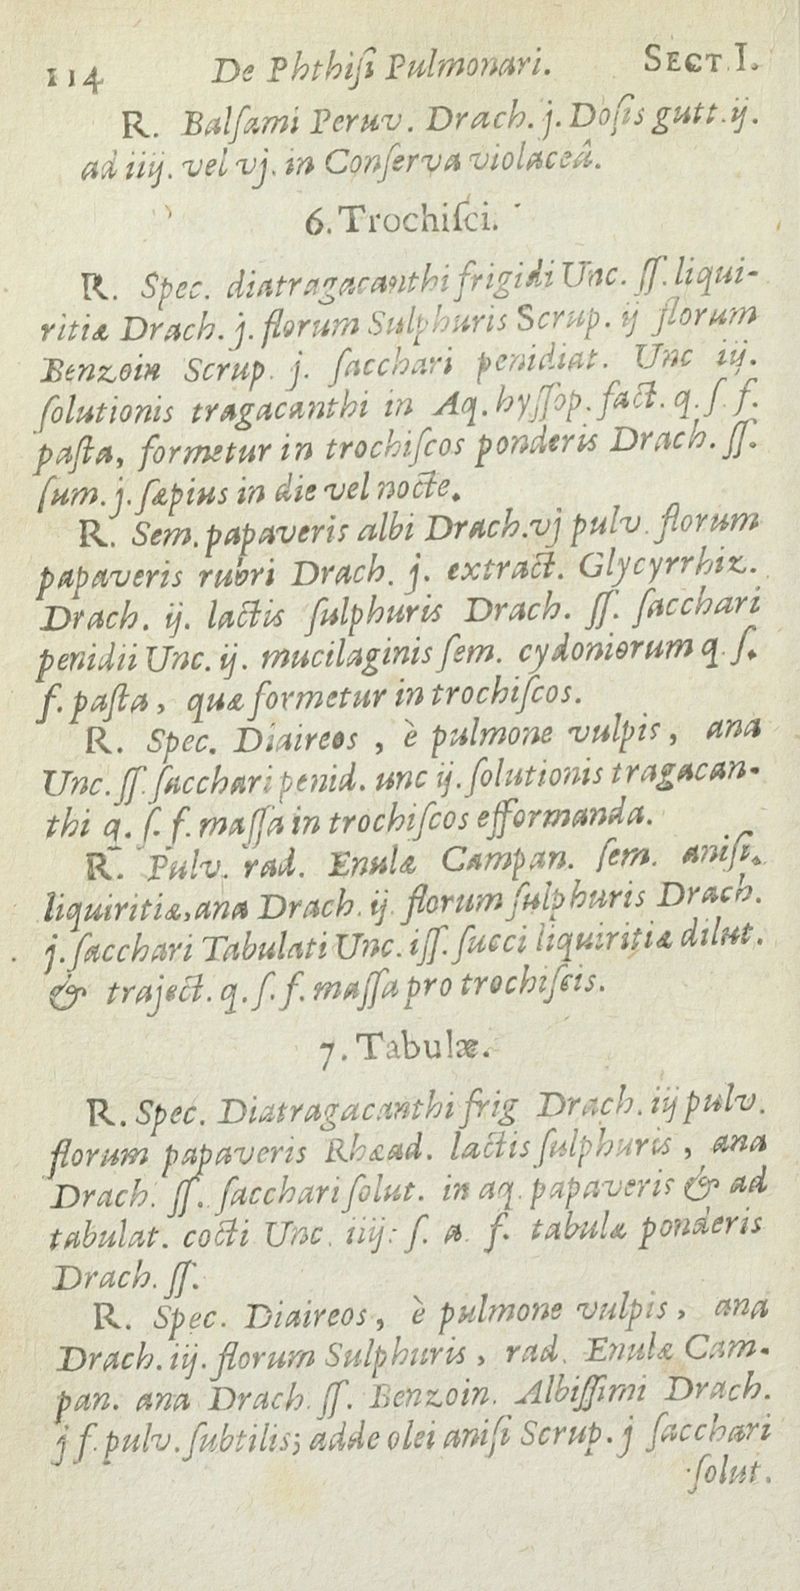 114 De Phthiſi Pulmonari. SECT. I.
R. Balſami Peruv. Drach. j. Doſis gutt. ij.
ad iiij. vel vj. in Conſerva violaceâ.
6. Trochiſci.
R. Spec. diatragacanthi frigidi Unc. ſſ. liqui-
ritiæ Drach. j. florum Sulphuris Scrup. ij florum
Benzoin Scrup. j. ſacchari penidiat. Unc iij.
ſolutionis tragacanthi in Aq. hyſſop. fact. q. ſ. f.
paſta, formetur in trochiſcos ponderis Drach. ſſ.
ſum. j. ſæpius in die vel nocte.
R. Sem. papaveris albi Drach. vj pulv. florum
papaveris rubri Drach. j. extract. Glycyrrhiz.
Drach. ij. lactis ſulphuris Drach. ſſ. ſacchari
penidii Unc. ij. mucilaginis ſem. cydoniorum q. ſ.
f. paſta, quæ formetur in trochiſcos.
R. Spec. Diaireos, è pulmone vulpis, ana
Unc. ſſ. ſacchari penid. unc ij. ſolutionis tragacan-
thi q. ſ. f. maſſa in trochiſcos efformanda.
R. Pulv. rad. Enulæ Campan. ſem. aniſi.
liquiritiæ, ana Drach. ij. florum ſulphuris Drach.
j. ſacchari Tabulati Unc. iſſ. ſucci liquiritiæ dilut.
& traject. q. ſ. f. maſſa pro trochiſcis.
7. Tabulæ.
R. Spec. Diatragacanthi frig Drach. iij pulv.
florum papaveris Rhæad. lactis ſulphuris, ana
Drach. ſſ. ſacchari ſolut. in aq. papaveris & ad
tabulat. cocti Unc. iiij: ſ. a. f. tabulæ ponderis
Drach. ſſ.
R. Spec. Diaireos, è pulmone vulpis, ana
Drach. iij. florum Sulphuris, rad. Enulæ Cam-
pan. ana Drach. ſſ. Benzoin. Albiſſimi Drach.
j f. pulv. ſubtilis; adde olei aniſi Scrup. j ſacchari
ſolut.